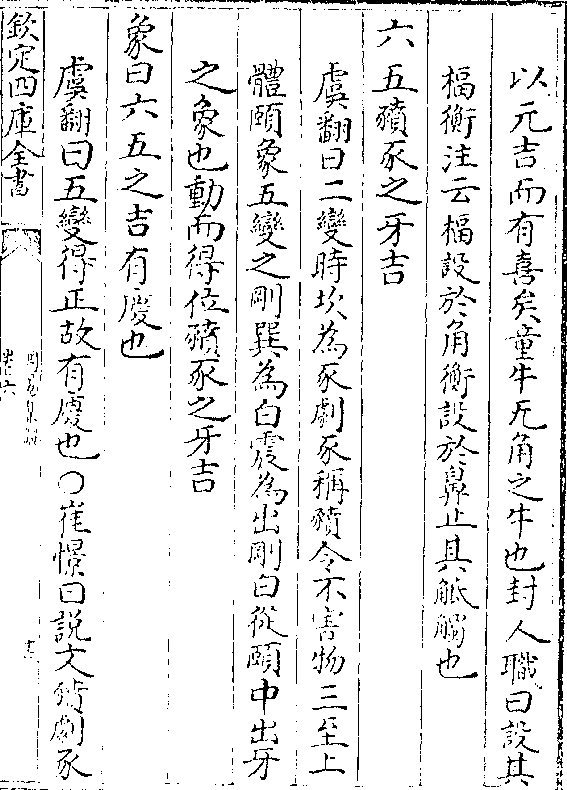 以元吉而有喜矣童牛无角之牛也封人職曰設其
楅衡注云楅設於角衡設於鼻止其觝觸也
六五豶豕之牙吉
虞翻曰二變時坎為豕劇豕稱豶令不害物三至上
體頤象五變之剛巽為白震為出剛白從頤中出牙
之象也動而得位豶豕之牙吉
象曰六五之吉有慶也
虞翻曰五變得正故有慶也○崔憬曰説文豶劇豕
欽定四庫全書
卷六